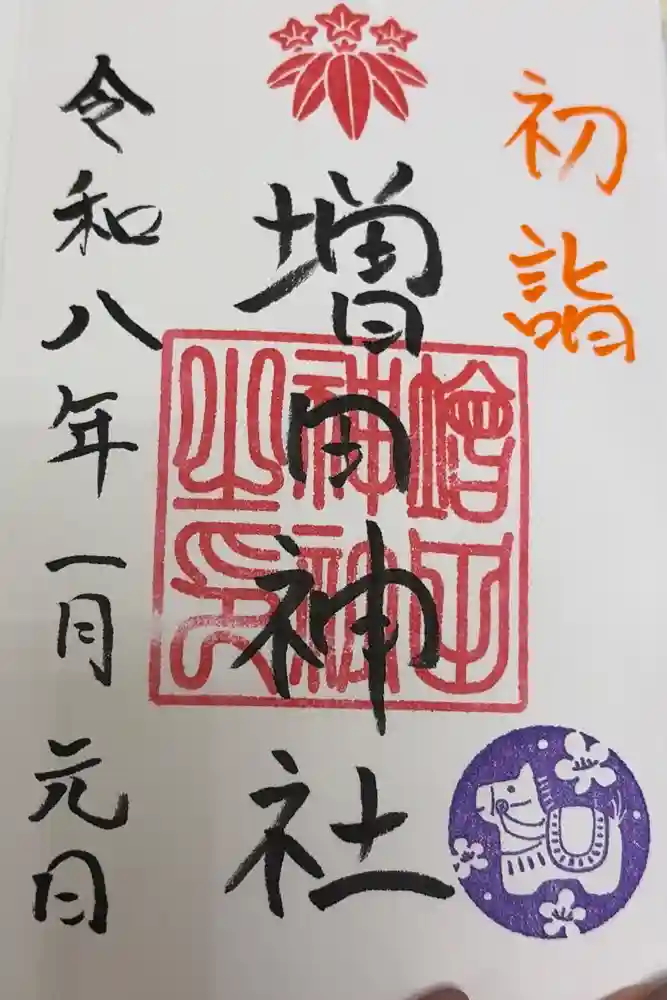 初詣
増田神社
増田神社之印
令和八年一月元日